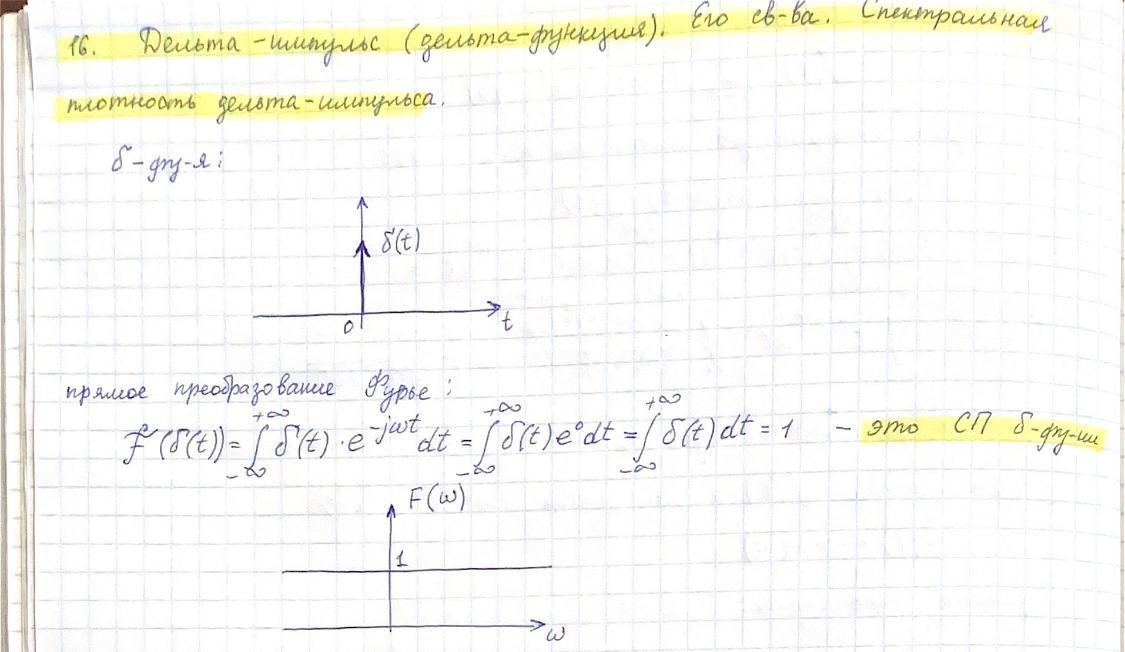 16. Дельта-импульс (дельта-функция). Его св-ва. Спектральная
плотность дельта-импульса.
δ-фу-я:
δ(t)
0 t
прямое преобразование Фурье:
F(δ(t)) = ∫_{-∞}^{+∞} δ(t) · e^{-jωt} dt = ∫_{-∞}^{+∞} δ(t) e° dt = ∫_{-∞}^{+∞} δ(t) dt = 1 – это СП δ-фу-ии
F(ω)
1
ω